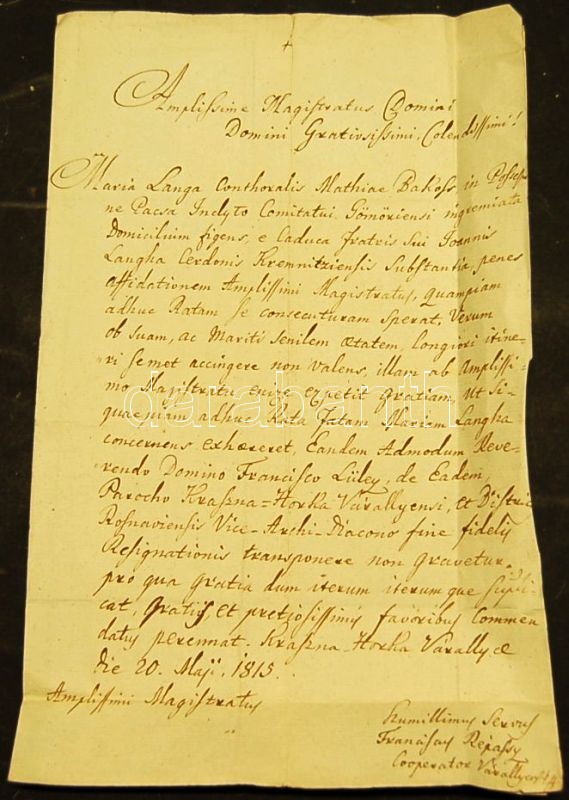 Amplissime Magistratus Domini
Domini Gratiosissimi, Colendissimi!
Maria Langa Conthoralis Mathiae Bakoss in Possessio
ne Pacsa Inclyto Comitatui Gömöriensi ingremiata
Domicilium figens, e Caduca Fratris Sui Joannis
Langha Cerdonis Kremnitziensis Substantia, penes
affidationem Amplissimi Magistratus, Quampiam
adhuc Ratam se consecuturam sperat. Verum
ob suam, ac Mariti senilem aetatem, longiori itine-
ri semet accingere non valens, illam ab Amplissi-
mo Magistratu enixe expetit gratiam, ut si-
quaepiam adhuc Rata fatam Mariam Langha
concernens exhaereret, Eandem Admodum Reve-
rendo Domino Francisco Liiley, de Eadem,
Parocho Kraszna-Horka Várallyensi, et Districtus
Rosnaviensis Vice-Archi-Diacono fine fidelis
Resignationis transponere non gravetur.
pro qua Gratia dum iterum iterumque suppli-
cat, Gratiis et pretiosissimis favoribus Commen
datus perennat. Kraszna-Horka Várallyae
die 20. Maji, 1815.
Amplissimi Magistratus
Humillimus Servus
Franciscus Répássy
Cooperator
darabanth